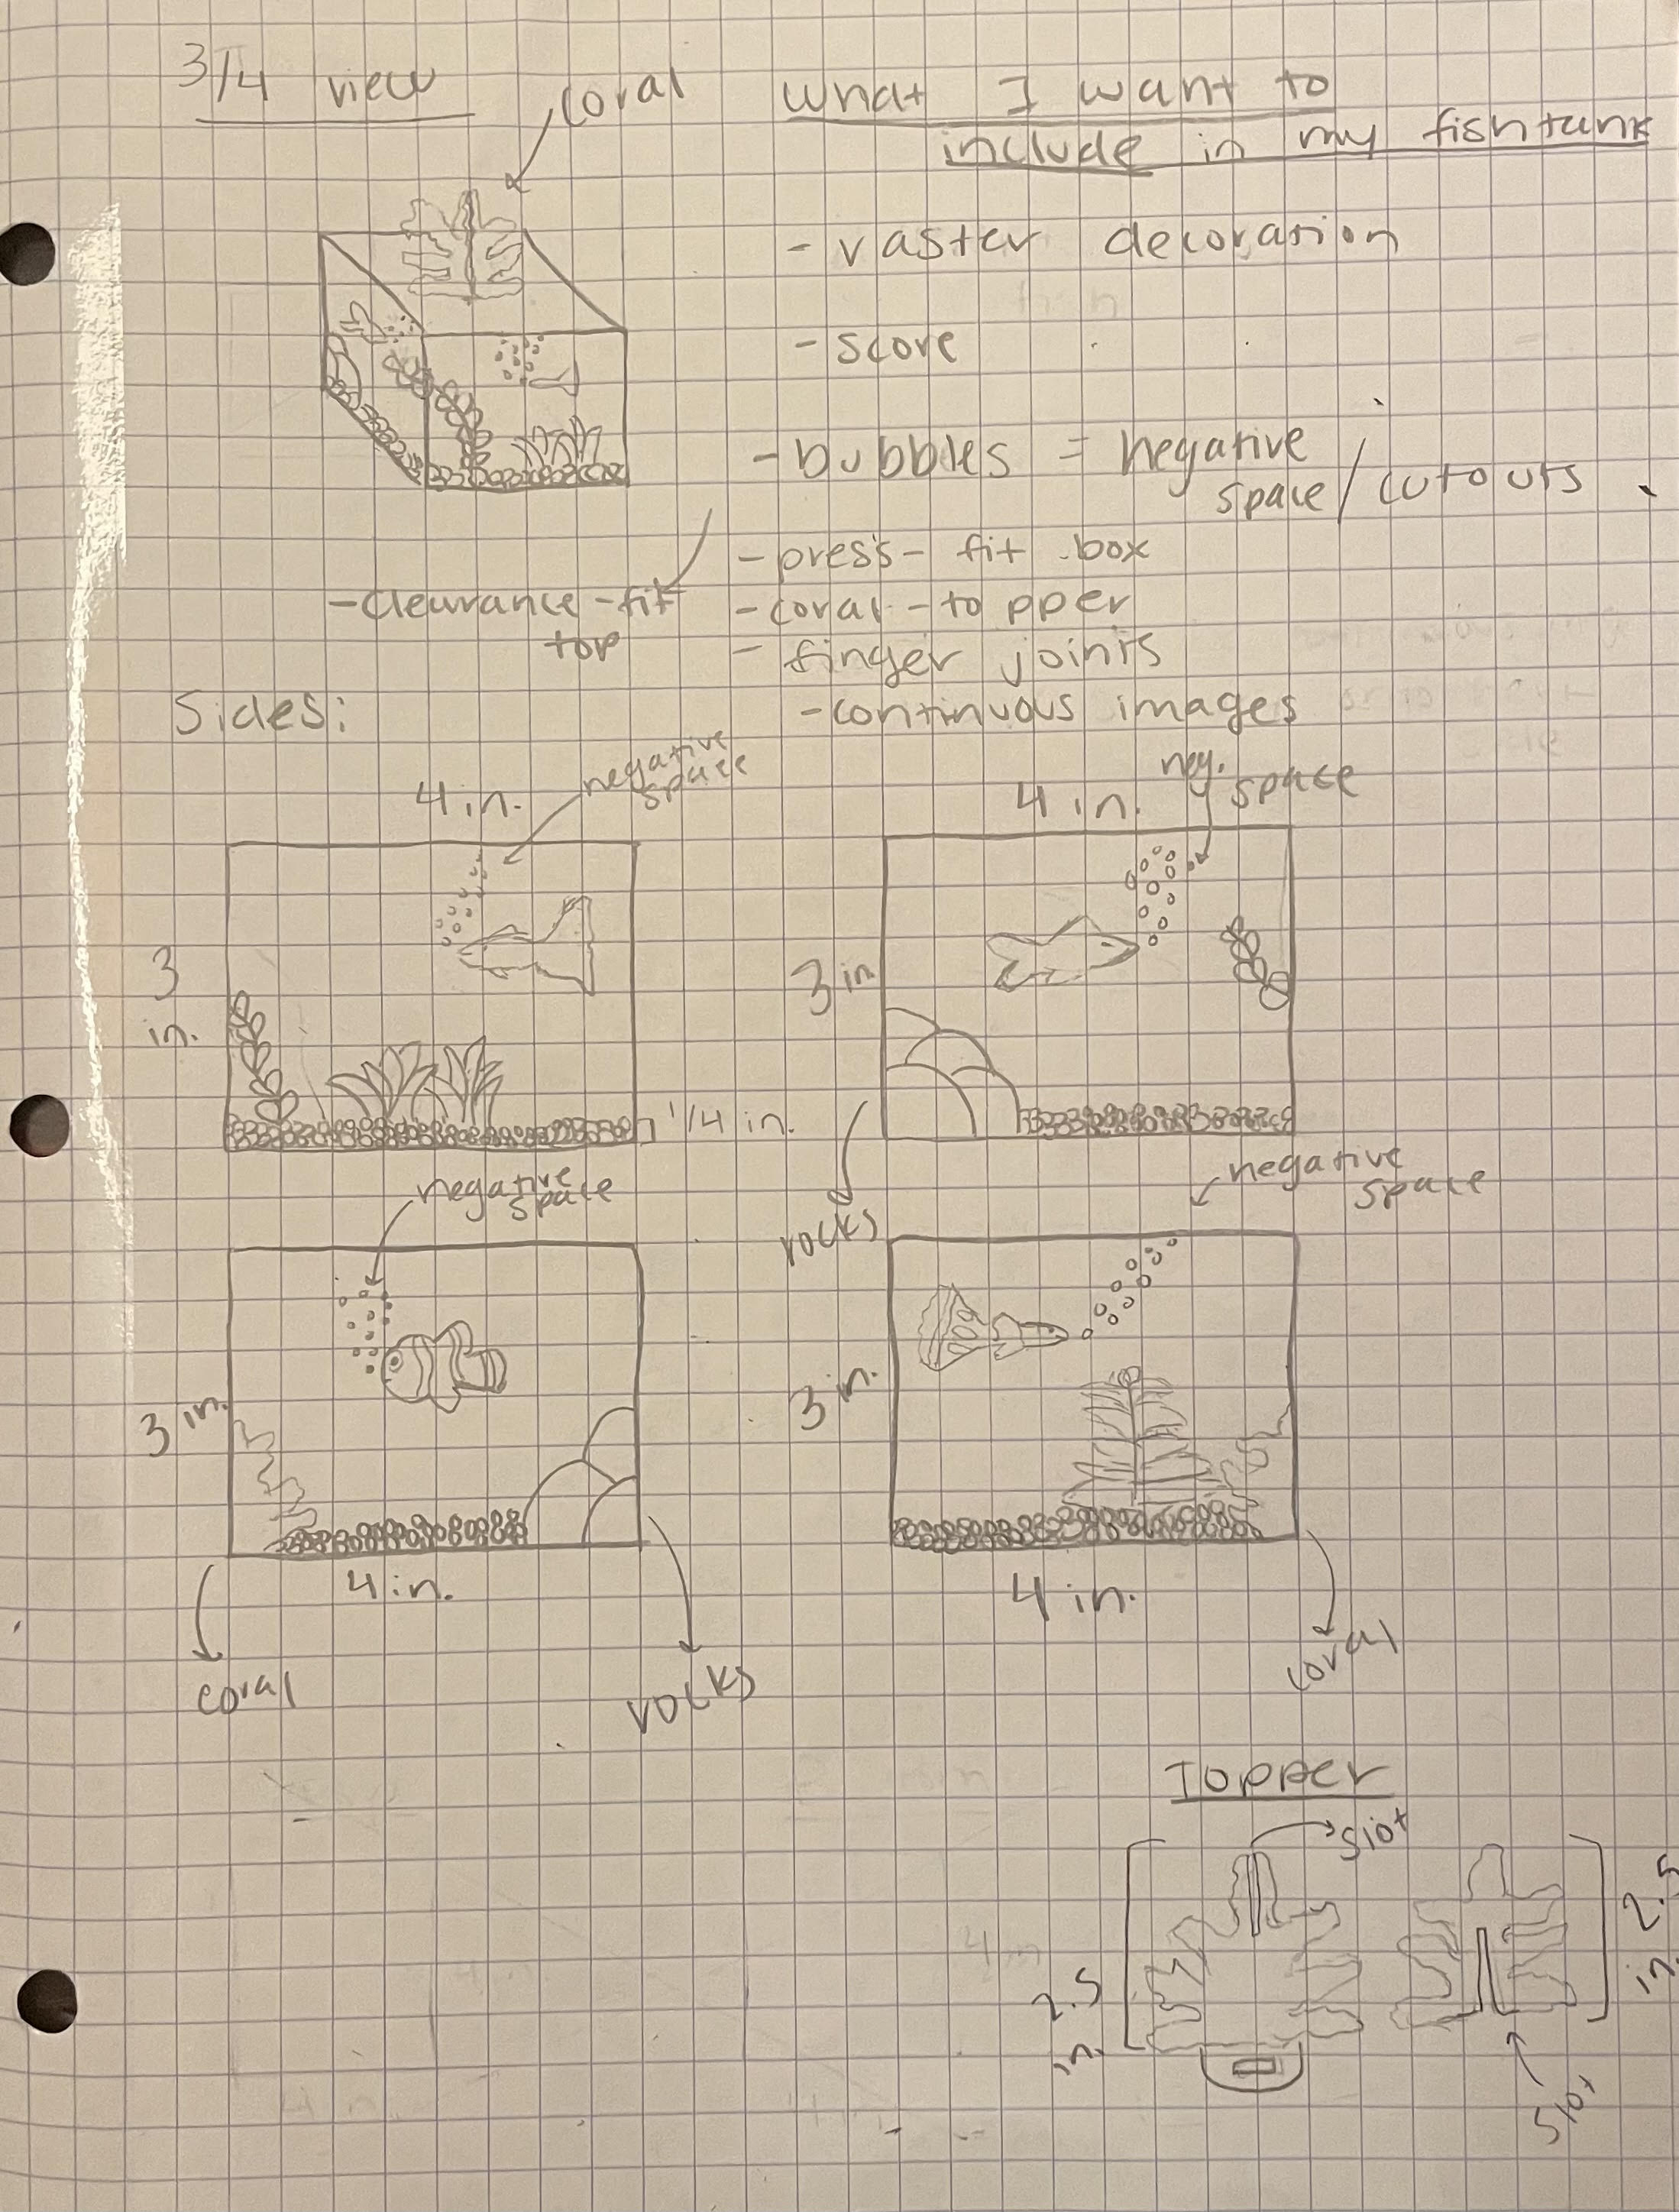 3/4 view
coral
What I want to
include in my fishtank
- raster decoration
- score
- bubbles = negative
space / cutouts
- press-fit box
- clearance-fit
top
- coral-topper
- finger joints
- continuous images
Sides:
4 in.
negative
space
3
in.
1/4 in.
4 in.
neg.
space
3 in
rocks
negative
space
3 in.
4 in.
coral
rocks
negative
space
3 in.
4 in.
coral
Topper
slot
2.5
in.
2.5
in.
slot